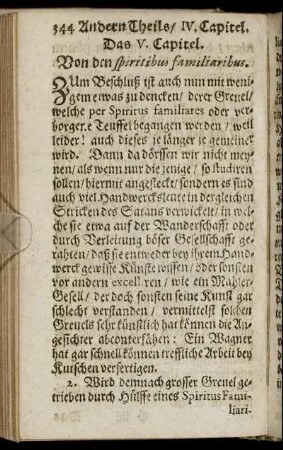 344 Andern Theils/ IV. Capitel.
Das V. Capitel.
Von den spiritibus familiaribus.
ZUm Beschluß ist auch nun mit weni-
gem etwas zu dencken/ derer Greuel/
welche per Spiritus familiares oder ver-
borgene Teuffel begangen werden/ weil
leider! auch dieses je länger je gemeiner
wird. Dann da dörffen wir nicht mey-
nen/ als wenn nur die jenige/ so studiren
sollen/ hiermit angesteckt/ sondern es sind
auch viel Handwercksleute in dergleichen
Stricken des Satans verwickelt/ in wel-
che sie etwa auf der Wanderschafft oder
durch Verleitung böser Gesellschafft ge-
rahten/ daß sie entweder bey ihrem Hand-
werck gewisse Künste wissen/ oder sonsten
vor andern excelliren/ wie ein Mahler-
Gesell/ der doch sonsten seine Kunst gar
schlecht verstanden/ vermittelst solchen
Greuels sehr künstlich hat können die An-
gesichter abconterfähen: Ein Wagner
hat gar schnell können treffliche Arbeit bey
Kutschen verfertigen.
2. Wird demnach grosser Greuel ge-
trieben durch Hülffe eines Spiritus Fami-
liari-